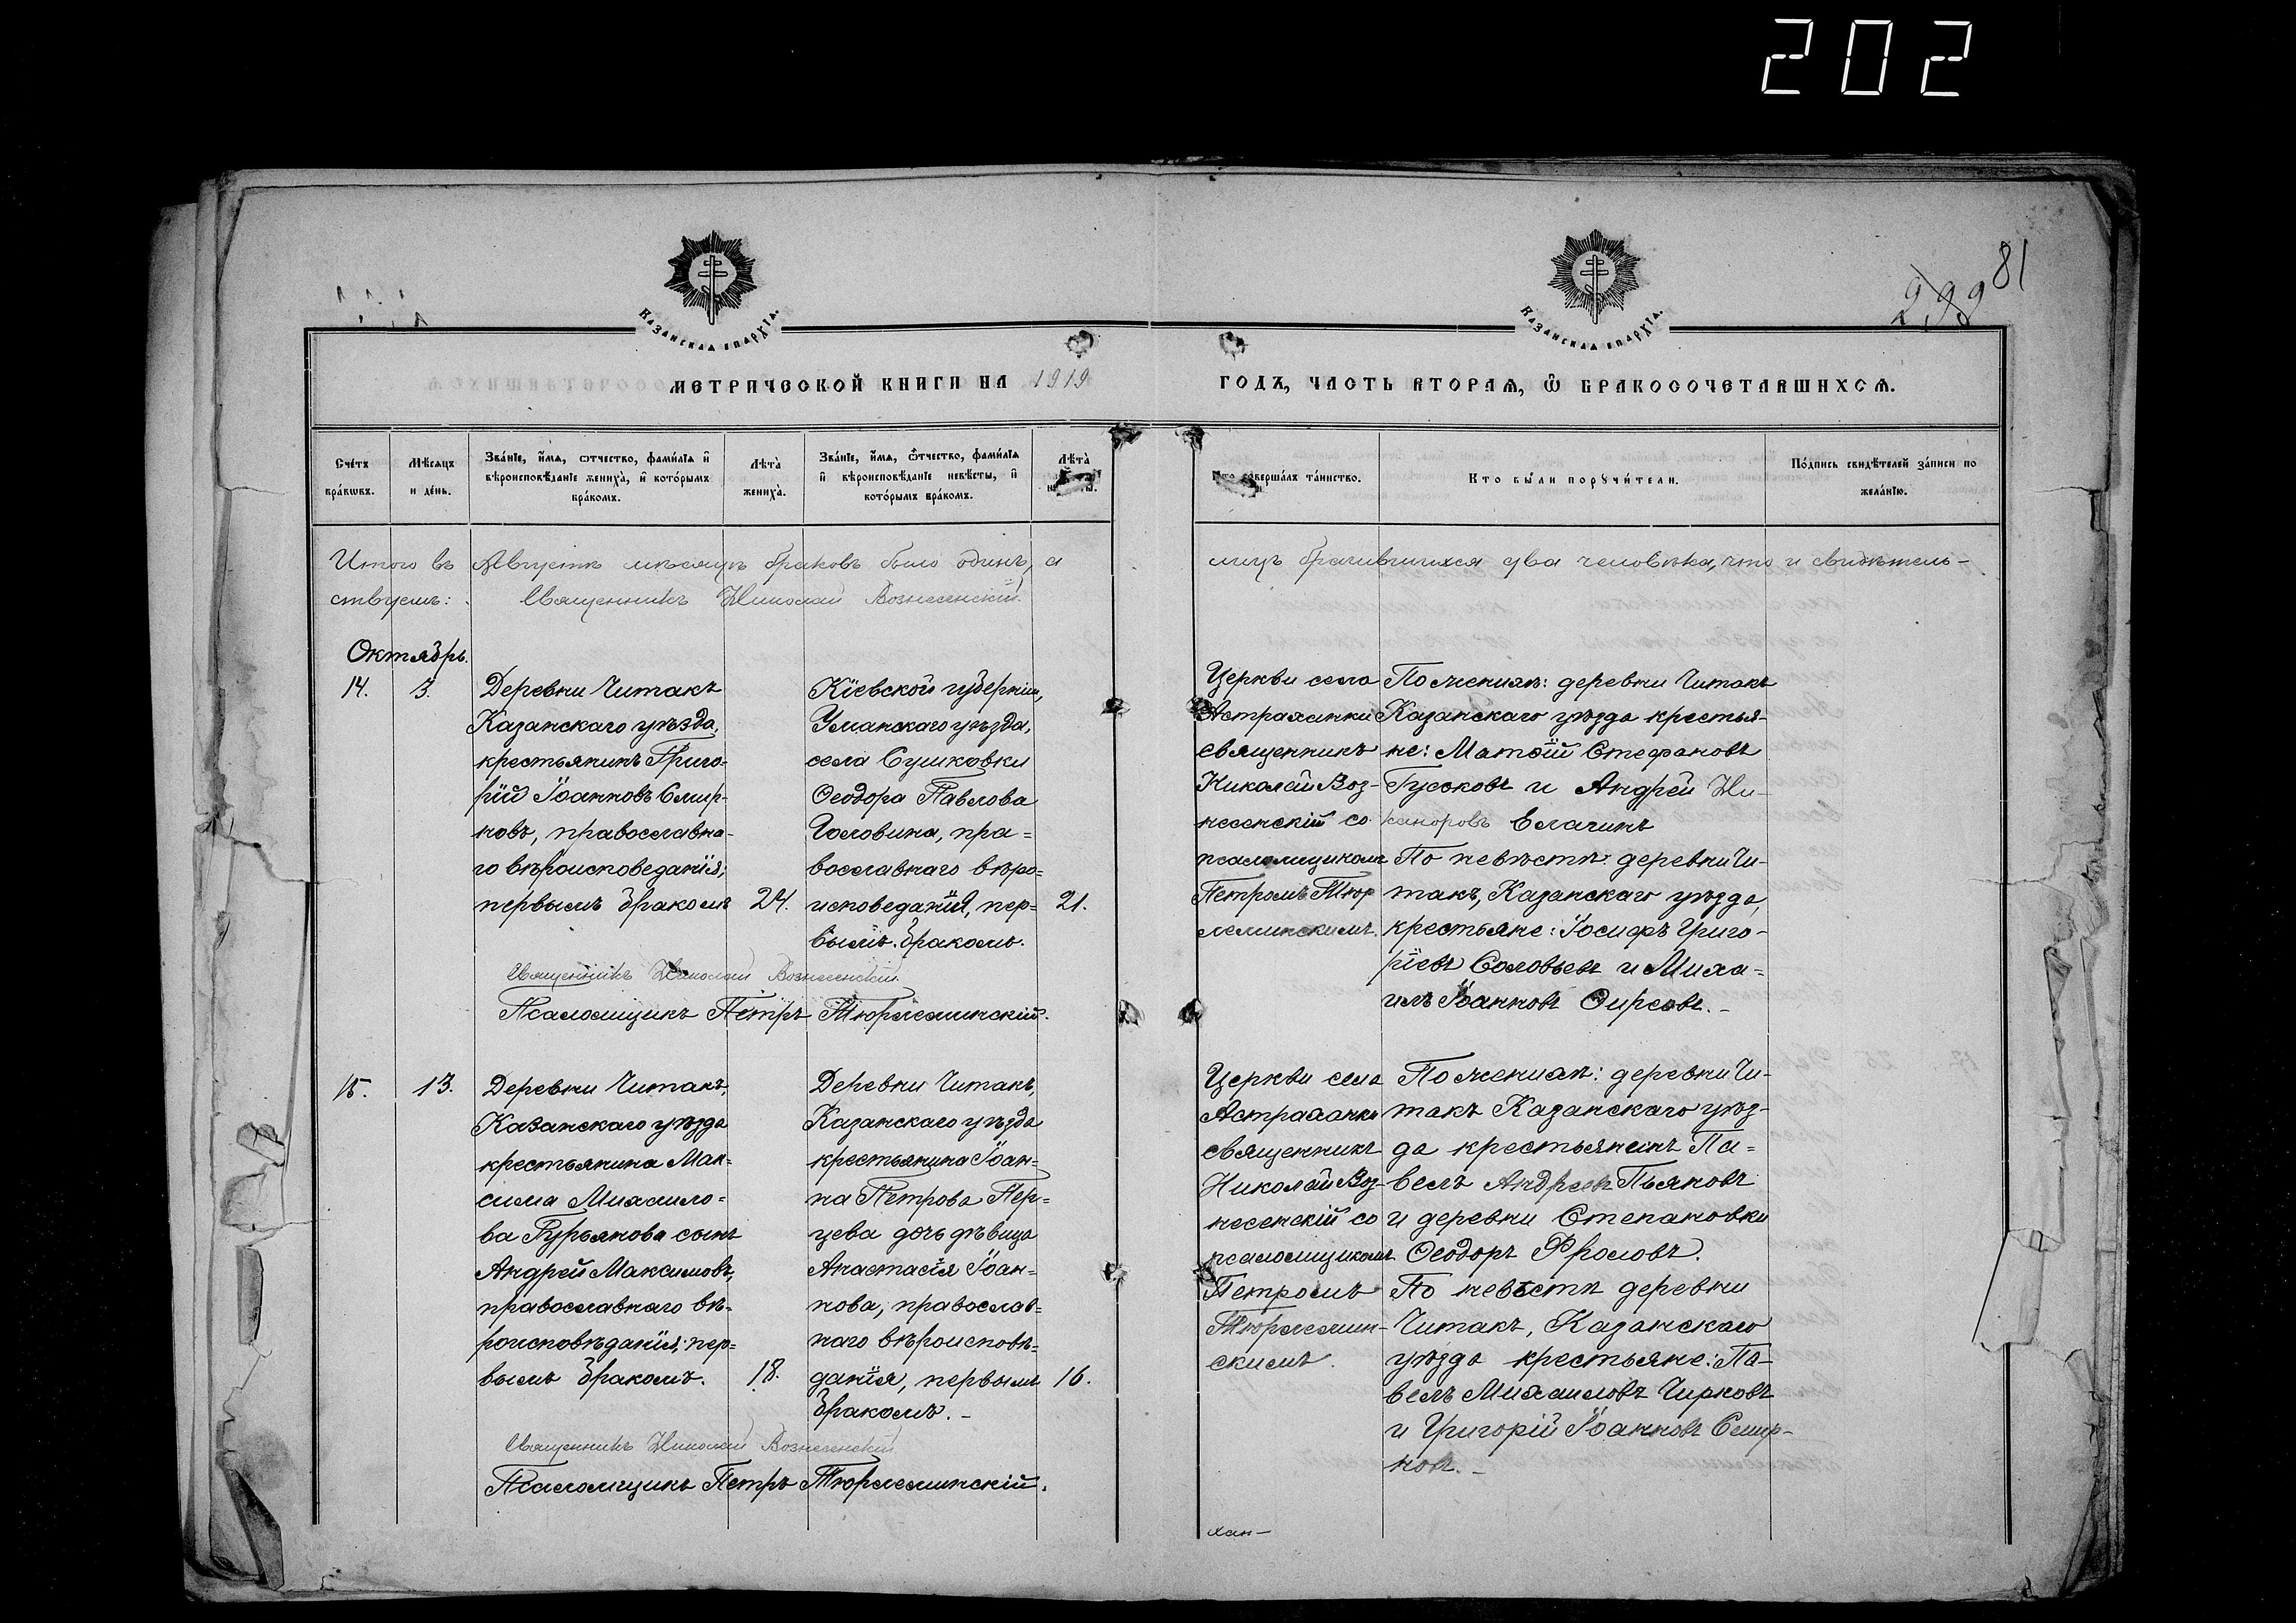 202
81
299
КАЗАНСКАЯ ЕПАРХІЯ.
КАЗАНСКАЯ ЕПАРХІЯ.
МЕТРИЧЕСКОЙ КНИГИ НА 1919
ГОДЪ, ЧАСТЬ ВТОРАЯ, Ѡ БРАКОСОЧЕТАВШИХСѦ.
Счетъ браковъ.
Мѣсяцъ и день.
Званіе, имя, отчество, фамилія и вѣроисповѣданіе жениха, и которымъ бракомъ.
Лѣта жениха.
Званіе, имя, отчество, фамилія и вѣроисповѣданіе невѣсты, и которымъ бракомъ.
Лѣта
совершалъ таинство.
Кто были поручители.
Подпись свидѣтелей записи по желанію.
Итого въ Августѣ мѣсяцѣ браковъ было одинъ, а
лицъ брачившихся два человѣка, что и свидѣтель-
ствуемъ: Священникъ Николай Вознесенскій
Октябрь.
14.
3.
Деревни Читакъ
Казанскаго уѣзда,
крестьянинъ Григо-
рій Іоанновъ Смир-
новъ, православна-
го вѣроисповеданія;
первымъ бракомъ
24.
Кіевской губерніи,
Уманскаго уѣзда,
села Сушковки
Ѳеодора Павлова
Головина, пра-
вославнаго вѣро-
исповеданія, пер-
вымъ бракомъ.
21.
Церкви села
Астраханки
священникъ
Николай Воз-
несенскій со
псаломщикомъ
Петромъ Тюр
леминскимъ.
По женихѣ: деревни Читакъ
Казанскаго уѣзда крестья-
не: Матѳій Стефановъ
Гусковъ и Андрей Ни-
каноровъ Елагинъ
По невѣстѣ: деревни Чи-
такъ, Казанскаго уѣзда,
крестьяне: Іосифъ Григо-
ріевъ Соловьевъ и Миха-
илъ Іоанновъ Ѳирсовъ.
Священникъ Николай Вознесенскій
Псаломщикъ Петръ Тюрлеминскій.
15.
13.
Деревни Читакъ,
Казанскаго уѣзда
крестьянина Мак-
сима Михаило-
ва Гурьянова сынъ
Андрей Максимовъ,
православнаго вѣ-
роисповѣданія; пер-
вымъ бракомъ.
18.
Деревни Читакъ,
Казанскаго уѣзда
крестьянина Іоан-
на Петрова Пер-
цева дочь дѣвица
Анастасія Іоан-
нова, православ-
наго вѣроисповѣ-
данія, первымъ
бракомъ. -
16.
Церкви села
Астраханки
священникъ
Николай Воз-
несенскій со
псаломщикомъ
Петромъ
Тюрлемин-
скимъ.
По женихѣ: деревни Чи-
такъ Казанскаго уѣз-
да крестьянинъ Па-
велъ Андреевъ Пьяновъ
и деревни Степановки
Ѳеодоръ Фроловъ.
По невѣстѣ деревни
Читакъ, Казанскаго
уѣзда крестьяне: Па-
велъ Михаиловъ Чирковъ
и Григорій Іоанновъ Смир-
новъ. -
Священникъ Николай Вознесенскій
Псаломщикъ Петръ Тюрлеминскій.
хан-